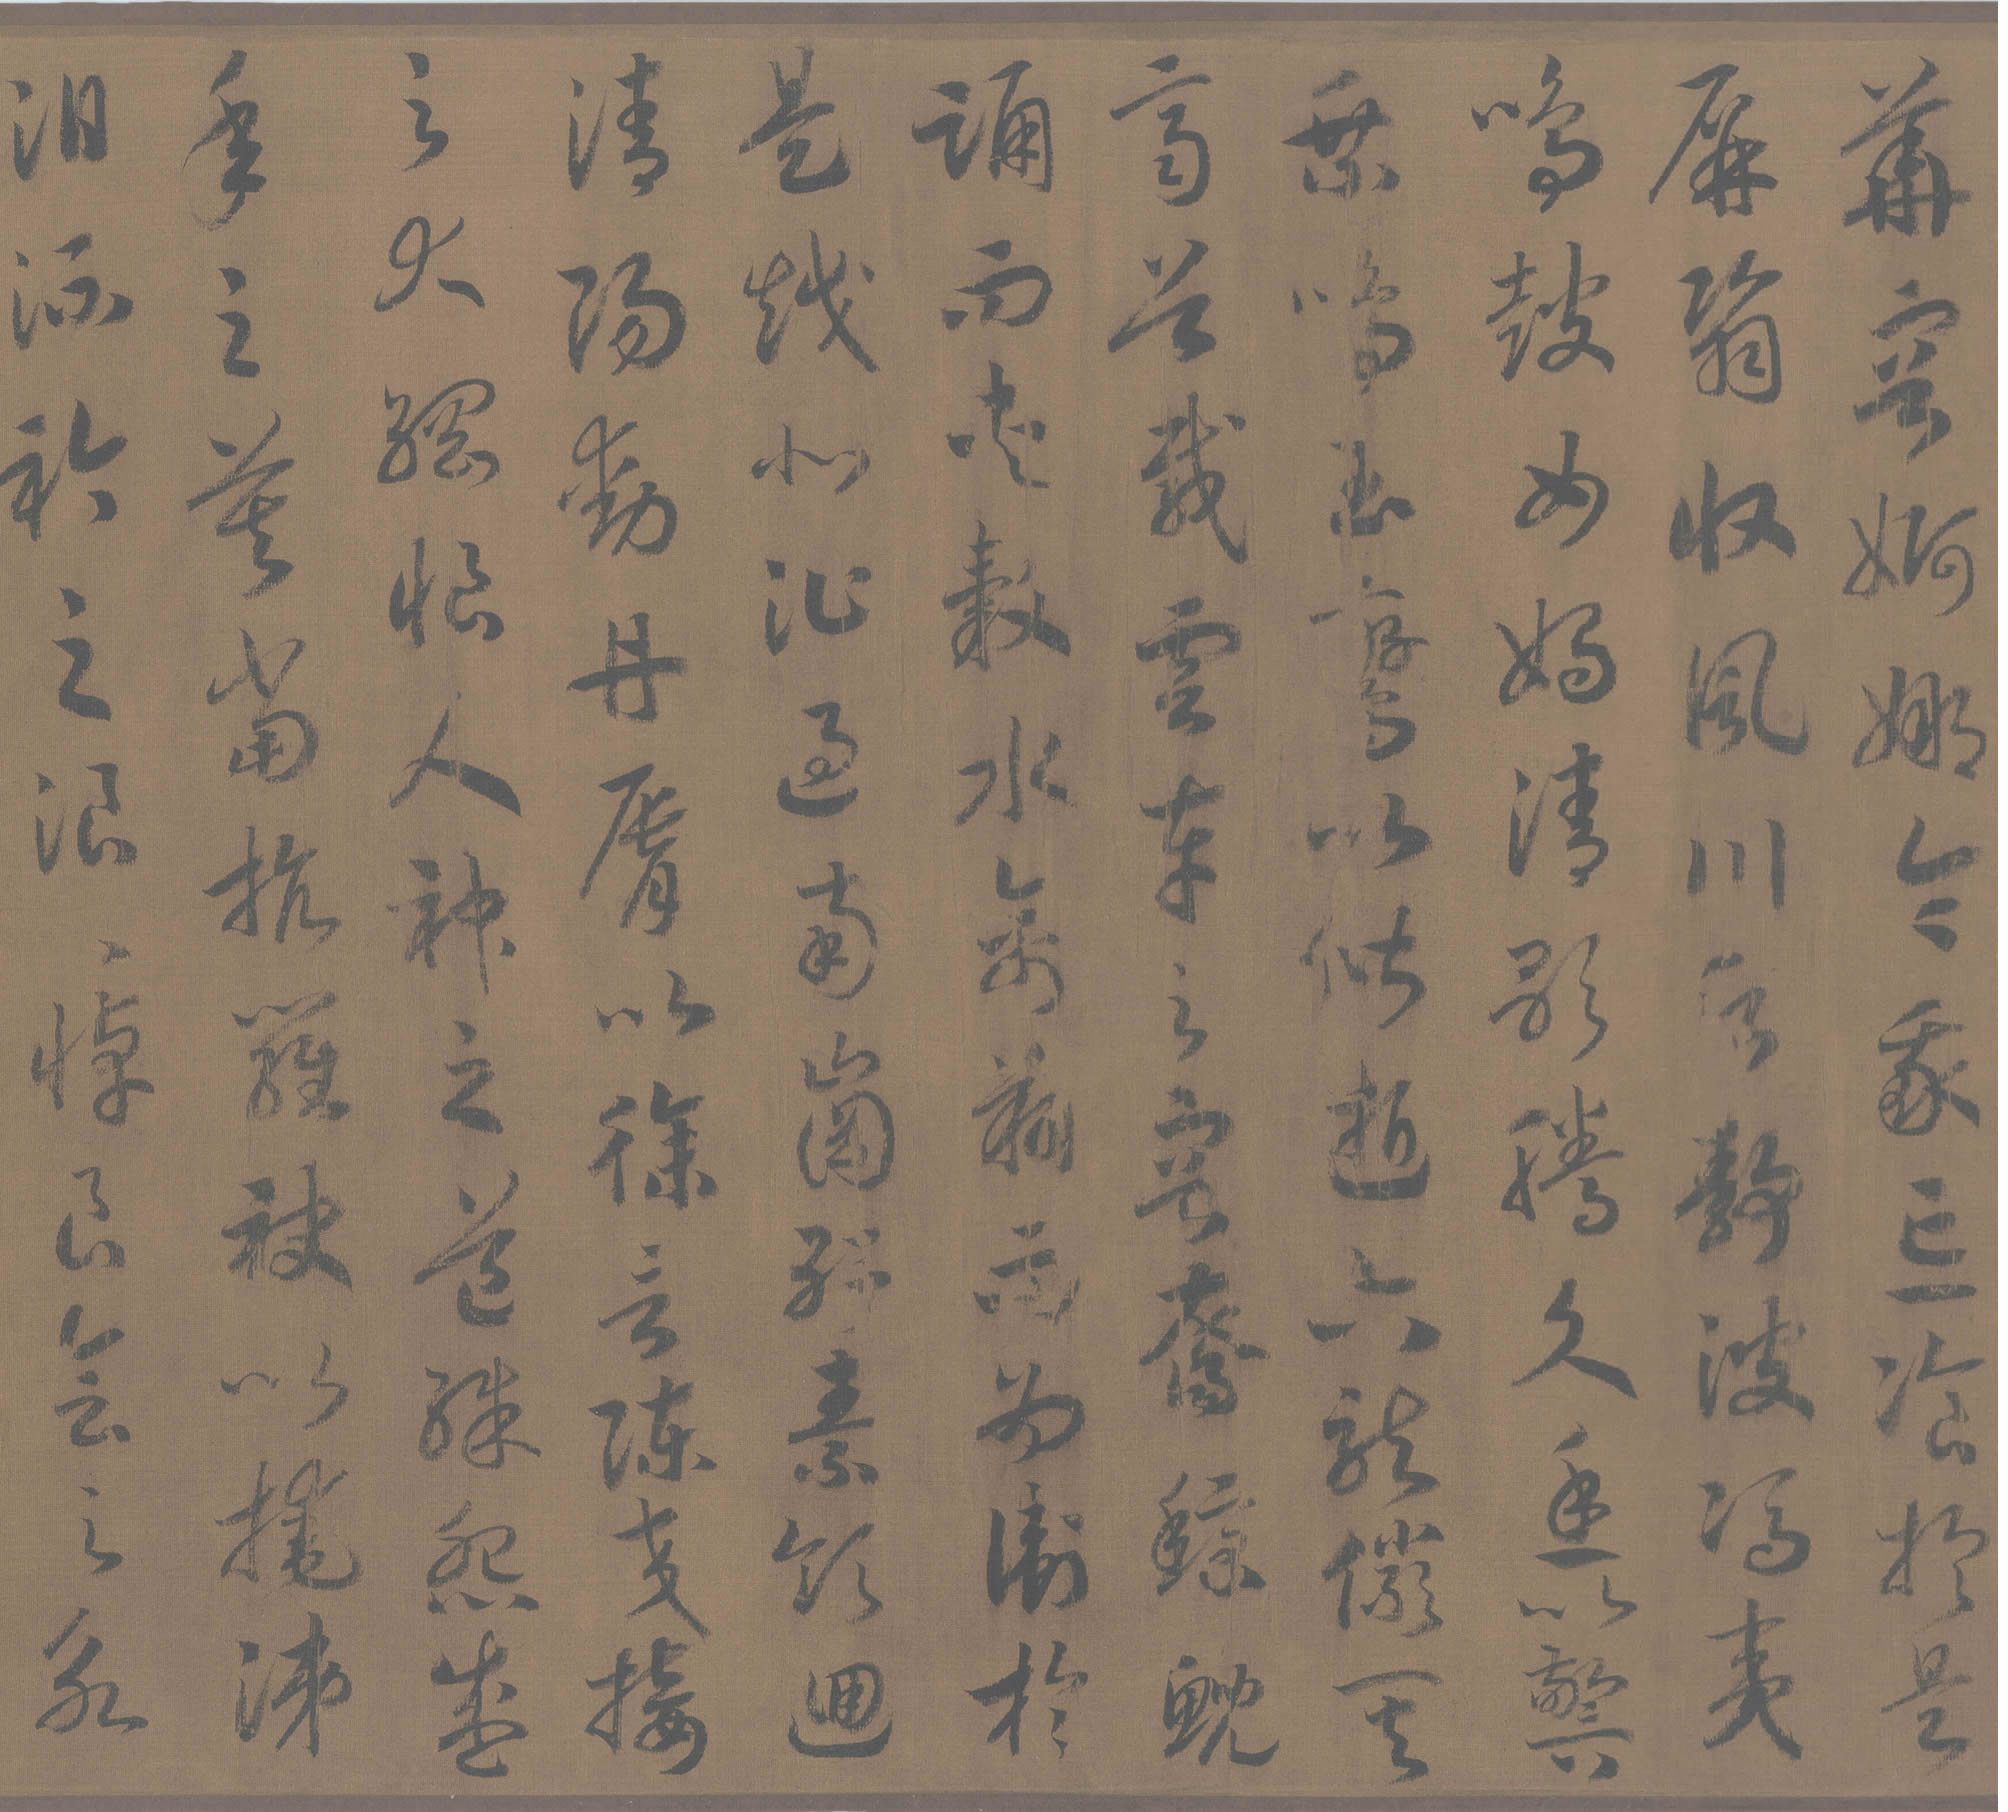 華容婀娜令我忘飡於是
屏翳收風川后靜波馮夷
鳴鼓女媧清歌騰文魚以警
乘鳴玉鸞以偕逝六龍儼其
齊首載雲車之容裔鯨鯢
踊而夾轂水禽翔而為衛於
是越北沚過南岡紆素領迴
清陽動丹脣以徐言陳交接
之大綱恨人神之道殊怨盛
年之莫當抗羅袂以掩涕
淚流衿之浪浪悼良會之永